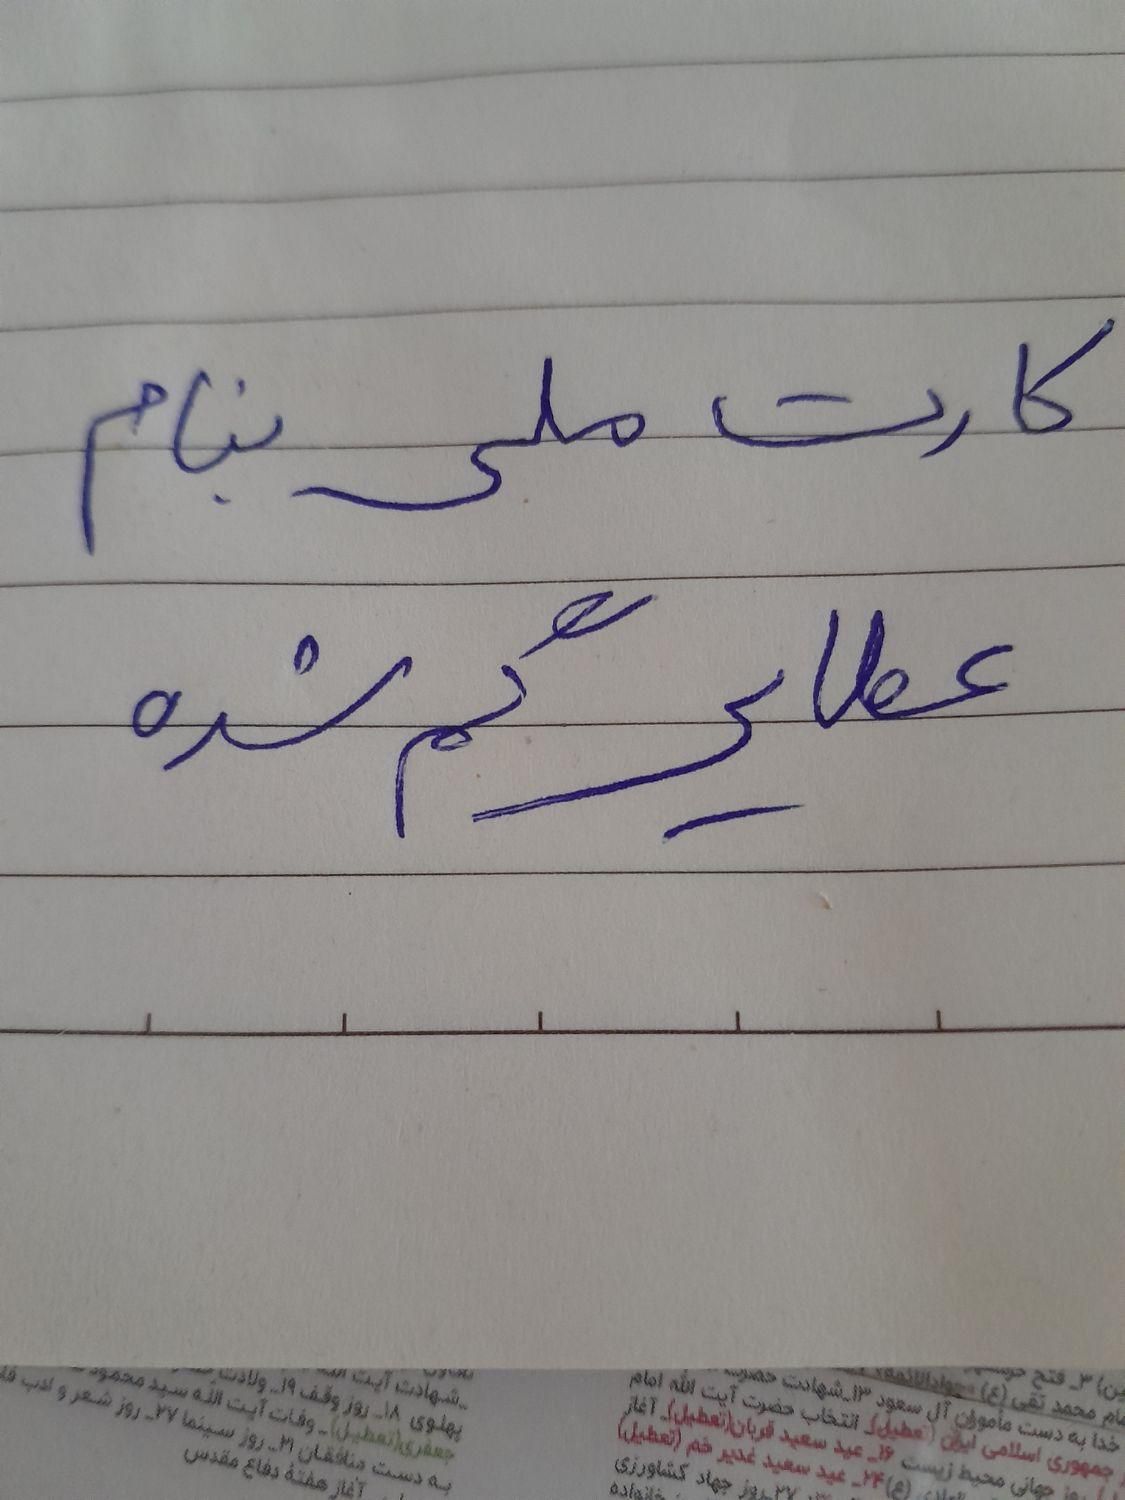 کارت ملی بنام
عطایی گم شده
شهادت آیت الله
پهلوی ۱۸_ روز وقف ۱۹_ ولادت
جعفری(تعطیل)_ وفات آیت الله سید محمود
به دست منافقان ۲۱_ روز سینما ۲۷_ روز شعر و ادب
آغاز هفتهٔ دفاع مقدس
۳_ فتح
امام محمد تقی (ع) جوادالائمه
خدا به دست ماموران آل سعود ۱۳_شهادت حضرت
جمهوری اسلامی ایران (تعطیل)_ انتخاب حضرت آیت الله امام
روز جهانی محیط زیست ۱۶_ عید سعید قربان(تعطیل)_ آغاز
(ع)۲۴_ عید سعید غدیر خم (تعطیل)
۲۷_روز جهاد کشاورزی
خانواده